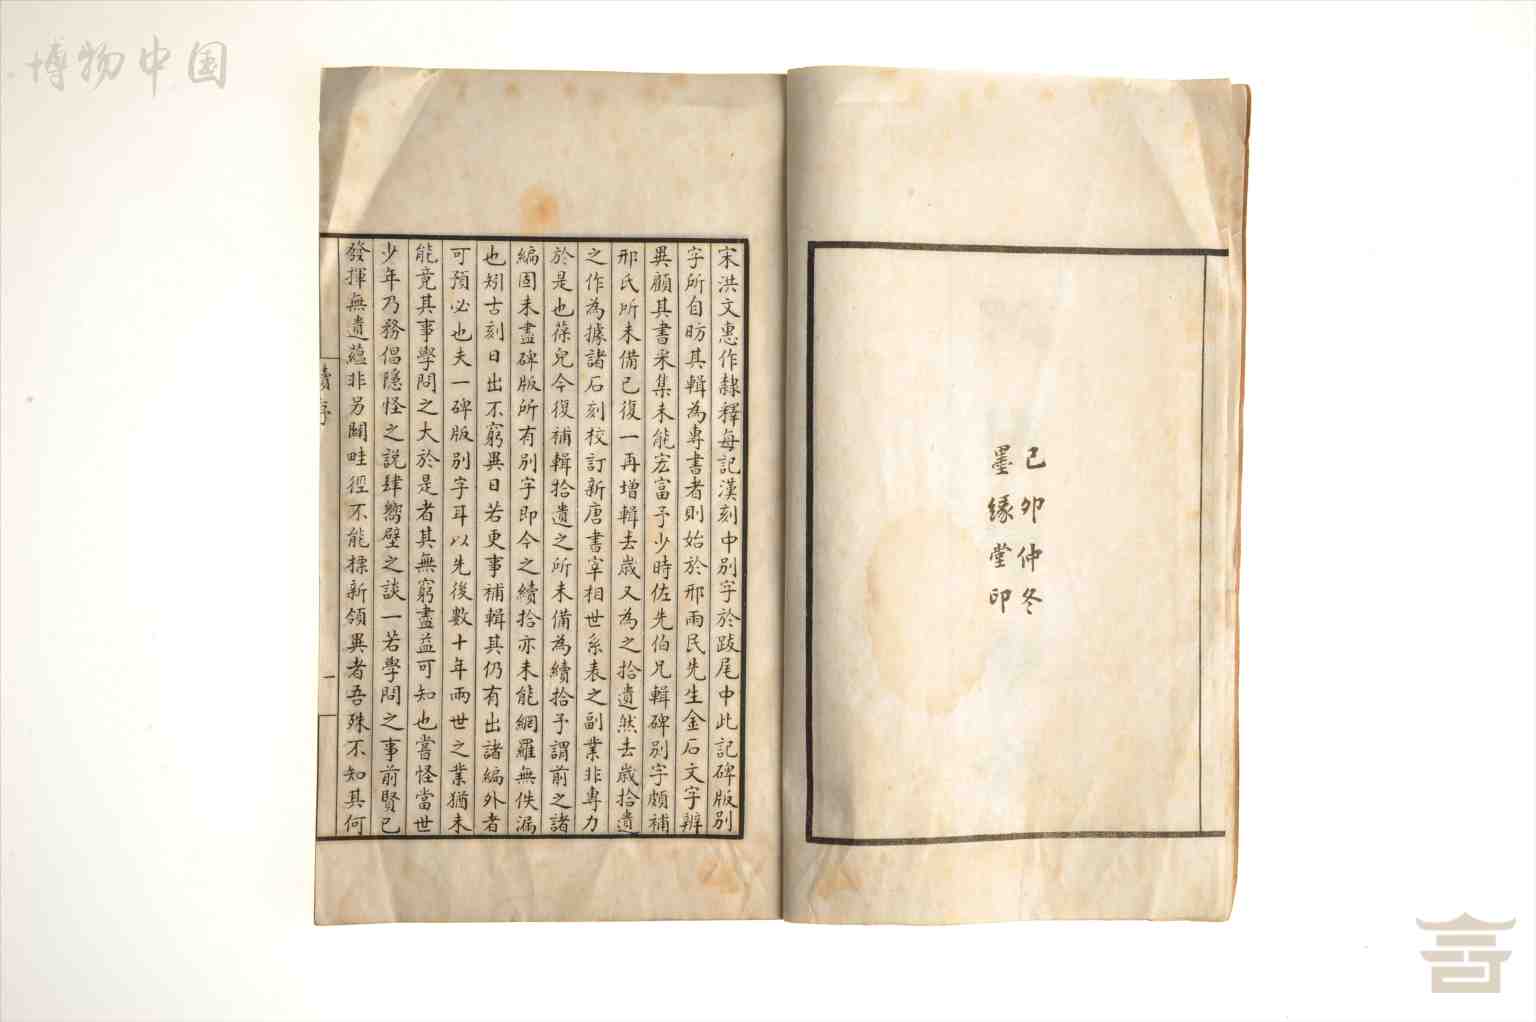 博物中国
己卯仲冬
墨緣堂印
宋洪文惠作隸釋每記漢刻中別字於跋尾中此記碑版別
字所自昉其輯為專書者則始於邢雨民先生金石文字辨
異顧其書采集未能宏富予少時佐先伯兄輯碑別字頗補
邢氏所未備已復一再增輯去歲又為之拾遺然去歲拾遺
之作為據諸石刻校訂新唐書宰相世系表之副業非專力
於是也葆兒今復補輯拾遺之所未備為續拾予謂前之諸
編固未盡碑版所有別字即今之續拾亦未能網羅無佚漏
也矧古刻日出不窮異日若更事補輯其仍有出諸編外者
可預必也夫一碑版別字耳以先後數十年兩世之業猶未
能竟其事學問之大於是者其無窮盡益可知也嘗怪當世
少年乃務倡隱怪之說肆嚮壁之談一若學問之事前賢已
發揮無遺蘊非另闢畦徑不能標新領異者吾殊不知其何
續序
一